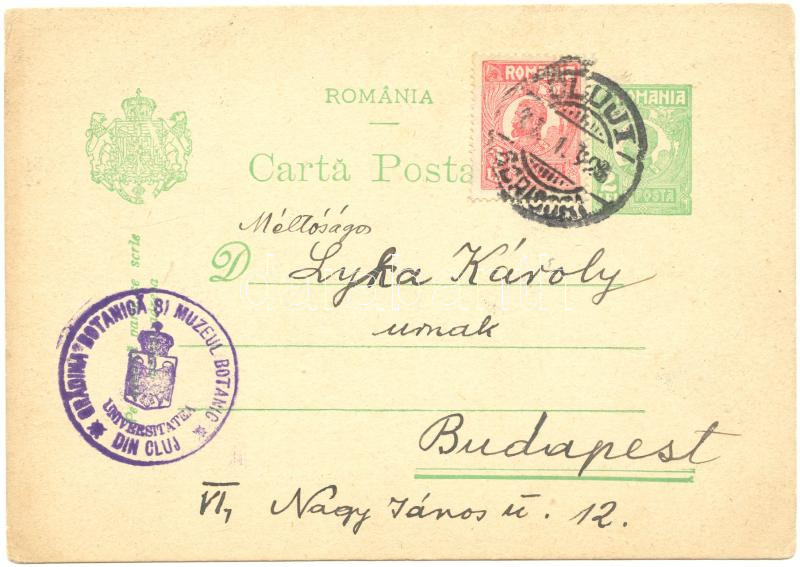 ROMÂNIA
Cartă Posta
ROMANIA
ROMANIA
POSTA
CLUJ 1
Méltóságos
D Lyka Károly
urnak
Budapest
VI, Nagy János u. 12.
GRĂDINA BOTANICĂ ȘI MUZEUL BOTANIC
UNIVERSITATEA
DIN CLUJ